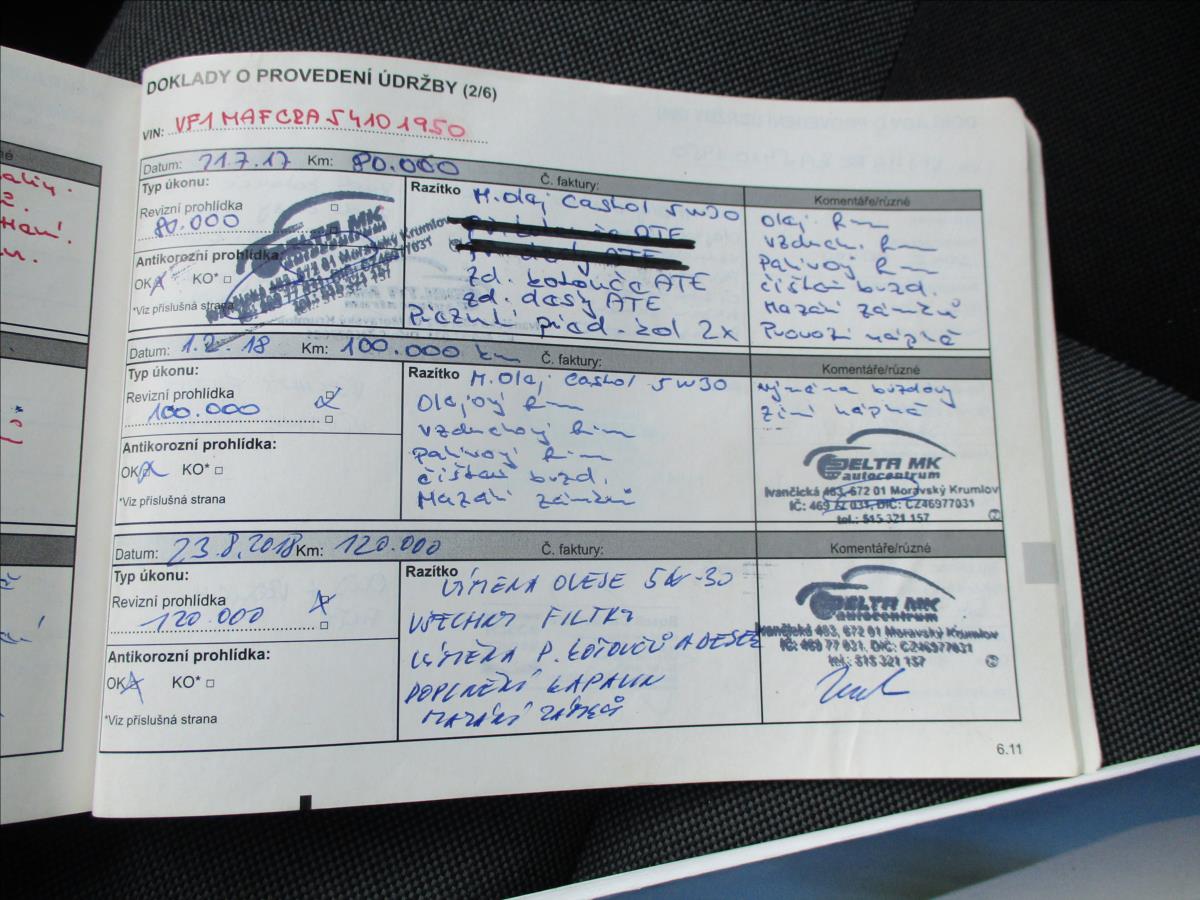 DOKLADY O PROVEDENÍ ÚDRŽBY (2/6)
VIN: VF1MAFCRA54101950
Datum: 21.7.17 Km: 80.000 Č. faktury:
Typ úkonu:
Revizní prohlídka
80.000
Antikorozní prohlídka:
OK KO*
*Viz příslušná strana
DELTA MK
Razítko M.olej Castrol 5W30
ATE
ATE
zd. kotouče ATE
zd. desky ATE
2x
Komentáře/různé
Olej.
Vzduch.
Palivový
čištění brzd.
Mazání zámků
Provozní náplně
Datum: 1.2.18 Km: 100.000 km Č. faktury:
Typ úkonu:
Revizní prohlídka
100.000
Antikorozní prohlídka:
OK KO*
*Viz příslušná strana
Razítko M.Olej Castrol 5W30
Olejový
Vzduchový
Palivový
čištění brzd.
Mazání zámků
Komentáře/různé
Výměna brzdový
náplně
DELTA MK
autocentrum
Ivančická 463, 672 01 Moravský Krumlov
IČ: 469 77 031, DIČ: CZ46977031
tel.: 515 321 157
Datum: 23.8.2018 Km: 120.000 Č. faktury:
Typ úkonu:
Revizní prohlídka
120.000
Antikorozní prohlídka:
OK KO*
*Viz příslušná strana
Razítko
VÝMĚNA OLEJE 5W-30
VŠECHNY FILTRY
VÝMĚNA P. KOTOUČŮ A DESEK
DOPLNĚNÍ KAPALIN
MAZÁNÍ ZÁMKŮ
Komentáře/různé
DELTA MK
autocentrum
Ivančická 463, 672 01 Moravský Krumlov
IČ: 469 77 031, DIČ: CZ46977031
tel.: 515 321 157
6.11